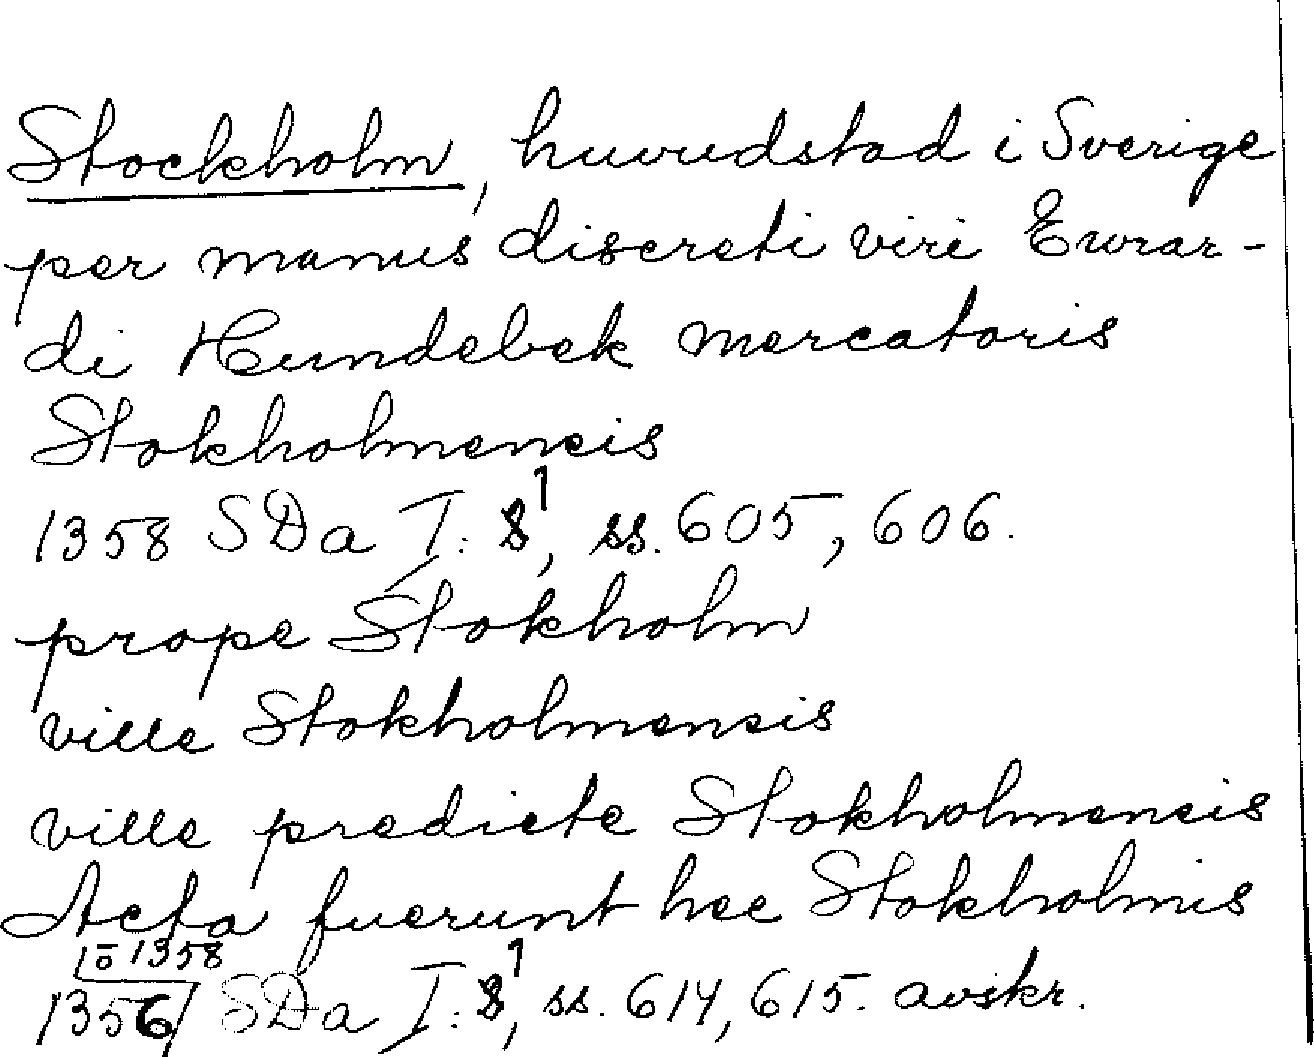 Stockholm, huvudstad i Sverige
per manus discreti viri Ewrar-
di Hundebek mercatoris
Stokholmencis
1358 SDa I: 1, ss. 605, 606.
prope Stokholm
ville Stokholmensis
ville predicte Stokholmencis
Acta fuerunt hec Stokholmis
1358
1356/ SDa I: 1, ss. 614, 615. avskr.